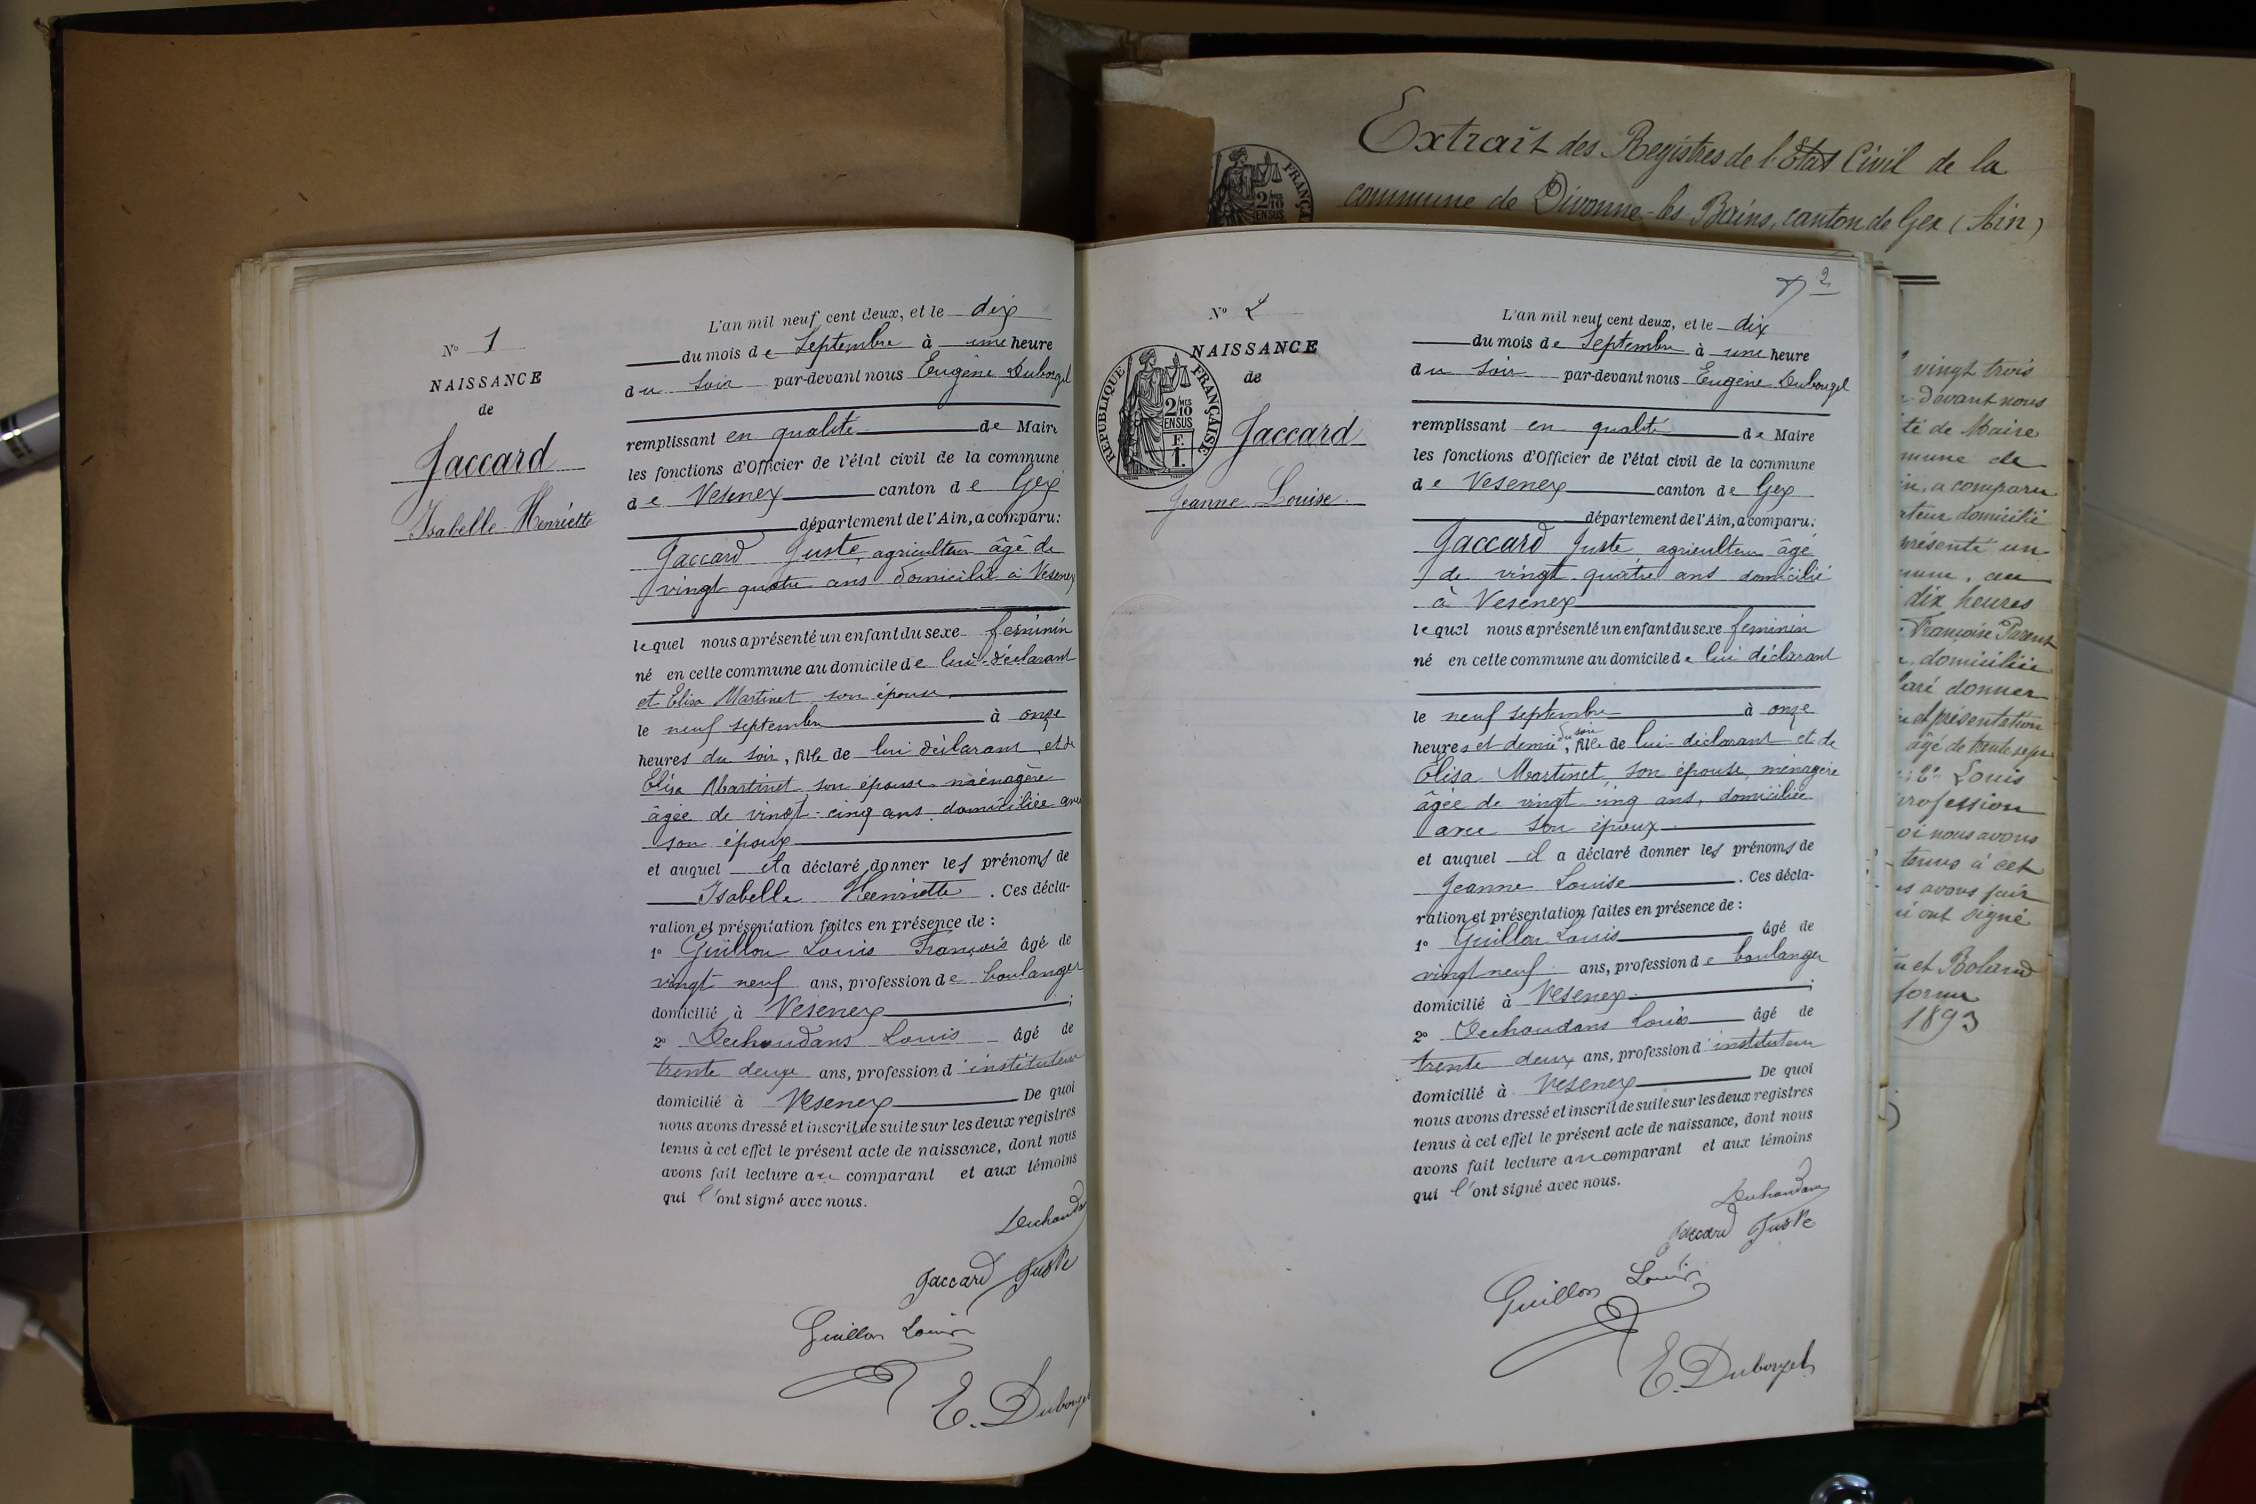 N° 1
NAISSANCE
de
Jaccard
Isabelle Henriette
L'an mil neuf cent deux, et le dix
du mois de septembre à une heure
du soir par-devant nous Eugène Duborgel
remplissant en qualité de Maire
les fonctions d'Officier de l'état civil de la commune
de Vesenex canton de Gex
département de l'Ain, a comparu:
Jaccard Juste, agriculteur âgé de
vingt quatre ans domicilié à Vesenex
lequel nous a présenté un enfant du sexe féminin
né en cette commune au domicile de lui-déclarant
et Elisa Martinet son épouse
le neuf septembre à onze
heures du soir, fille de lui déclarant, et de
Elisa Martinet son épouse ménagère
âgée de vingt-cinq ans domiciliée avec
son époux
et auquel il a déclaré donner les prénoms de
Isabelle Henriette. Ces décla-
ration et présentation faites en présence de :
1° Guillon Louis François âgé de
vingt neuf ans, profession de boulanger
domicilié à Vesenex ;
2° Dechoudans Louis âgé de
trente deux ans, profession d'instituteur
domicilié à Vesenex De quoi
nous avons dressé et inscrit de suite sur les deux registres
tenus à cet effet le présent acte de naissance, dont nous
avons fait lecture au comparant et aux témoins
qui l'ont signé avec nous.
Jaccard Juste
Guillon Louis
E. Duborgel
Extrait des Registres de l'Etat Civil de la
commune de Divonne-les Bains, canton de Gex (Ain)
2
N° 2
NAISSANCE
de
RÉPUBLIQUE FRANÇAISE
2/10 MES
EN SUS
F. 1.
Jaccard
Jeanne Louise.
L'an mil neuf cent deux, et le dix
du mois de septembre à une heure
du soir par-devant nous Eugène Duborgel
remplissant en qualité de Maire
les fonctions d'Officier de l'état civil de la commune
de Vesenex canton de Gex
département de l'Ain, a comparu:
Jaccard Juste agriculteur âgé
de vingt quatre ans domicilié
à Vesenex
lequel nous a présenté un enfant du sexe féminin
né en cette commune au domicile de lui déclarant
le neuf septembre à onze
heures et demie du soir, fille de lui-déclarant et de
Elisa Martinet, son épouse, ménagère
âgée de vingt cinq ans, domiciliée
avec son époux
et auquel il a déclaré donner les prénoms de
Jeanne Louise. Ces décla-
ration et présentation faites en présence de :
1° Guillon Louis âgé de
vingt neuf ans, profession de boulanger
domicilié à Vesenex ;
2° Dechoudans Louis âgé de
trente deux ans, profession d'instituteur
domicilié à Vesenex De quoi
nous avons dressé et inscrit de suite sur les deux registres
tenus à cet effet le présent acte de naissance, dont nous
avons fait lecture au comparant et aux témoins
qui l'ont signé avec nous.
Dechoudans
Jaccard Juste
Guillon Louis
E. Duborgel
vingt trois
devant nous
té de Maire
mune de
a comparu
domicilié
présenté un
au
dix heures
Françoise Parent
domiciliée
donner
et présentation
âgé de trente sept
Louis
profession
nous avons
tenus à cet
avons fait
ont signé
et Boland
1893